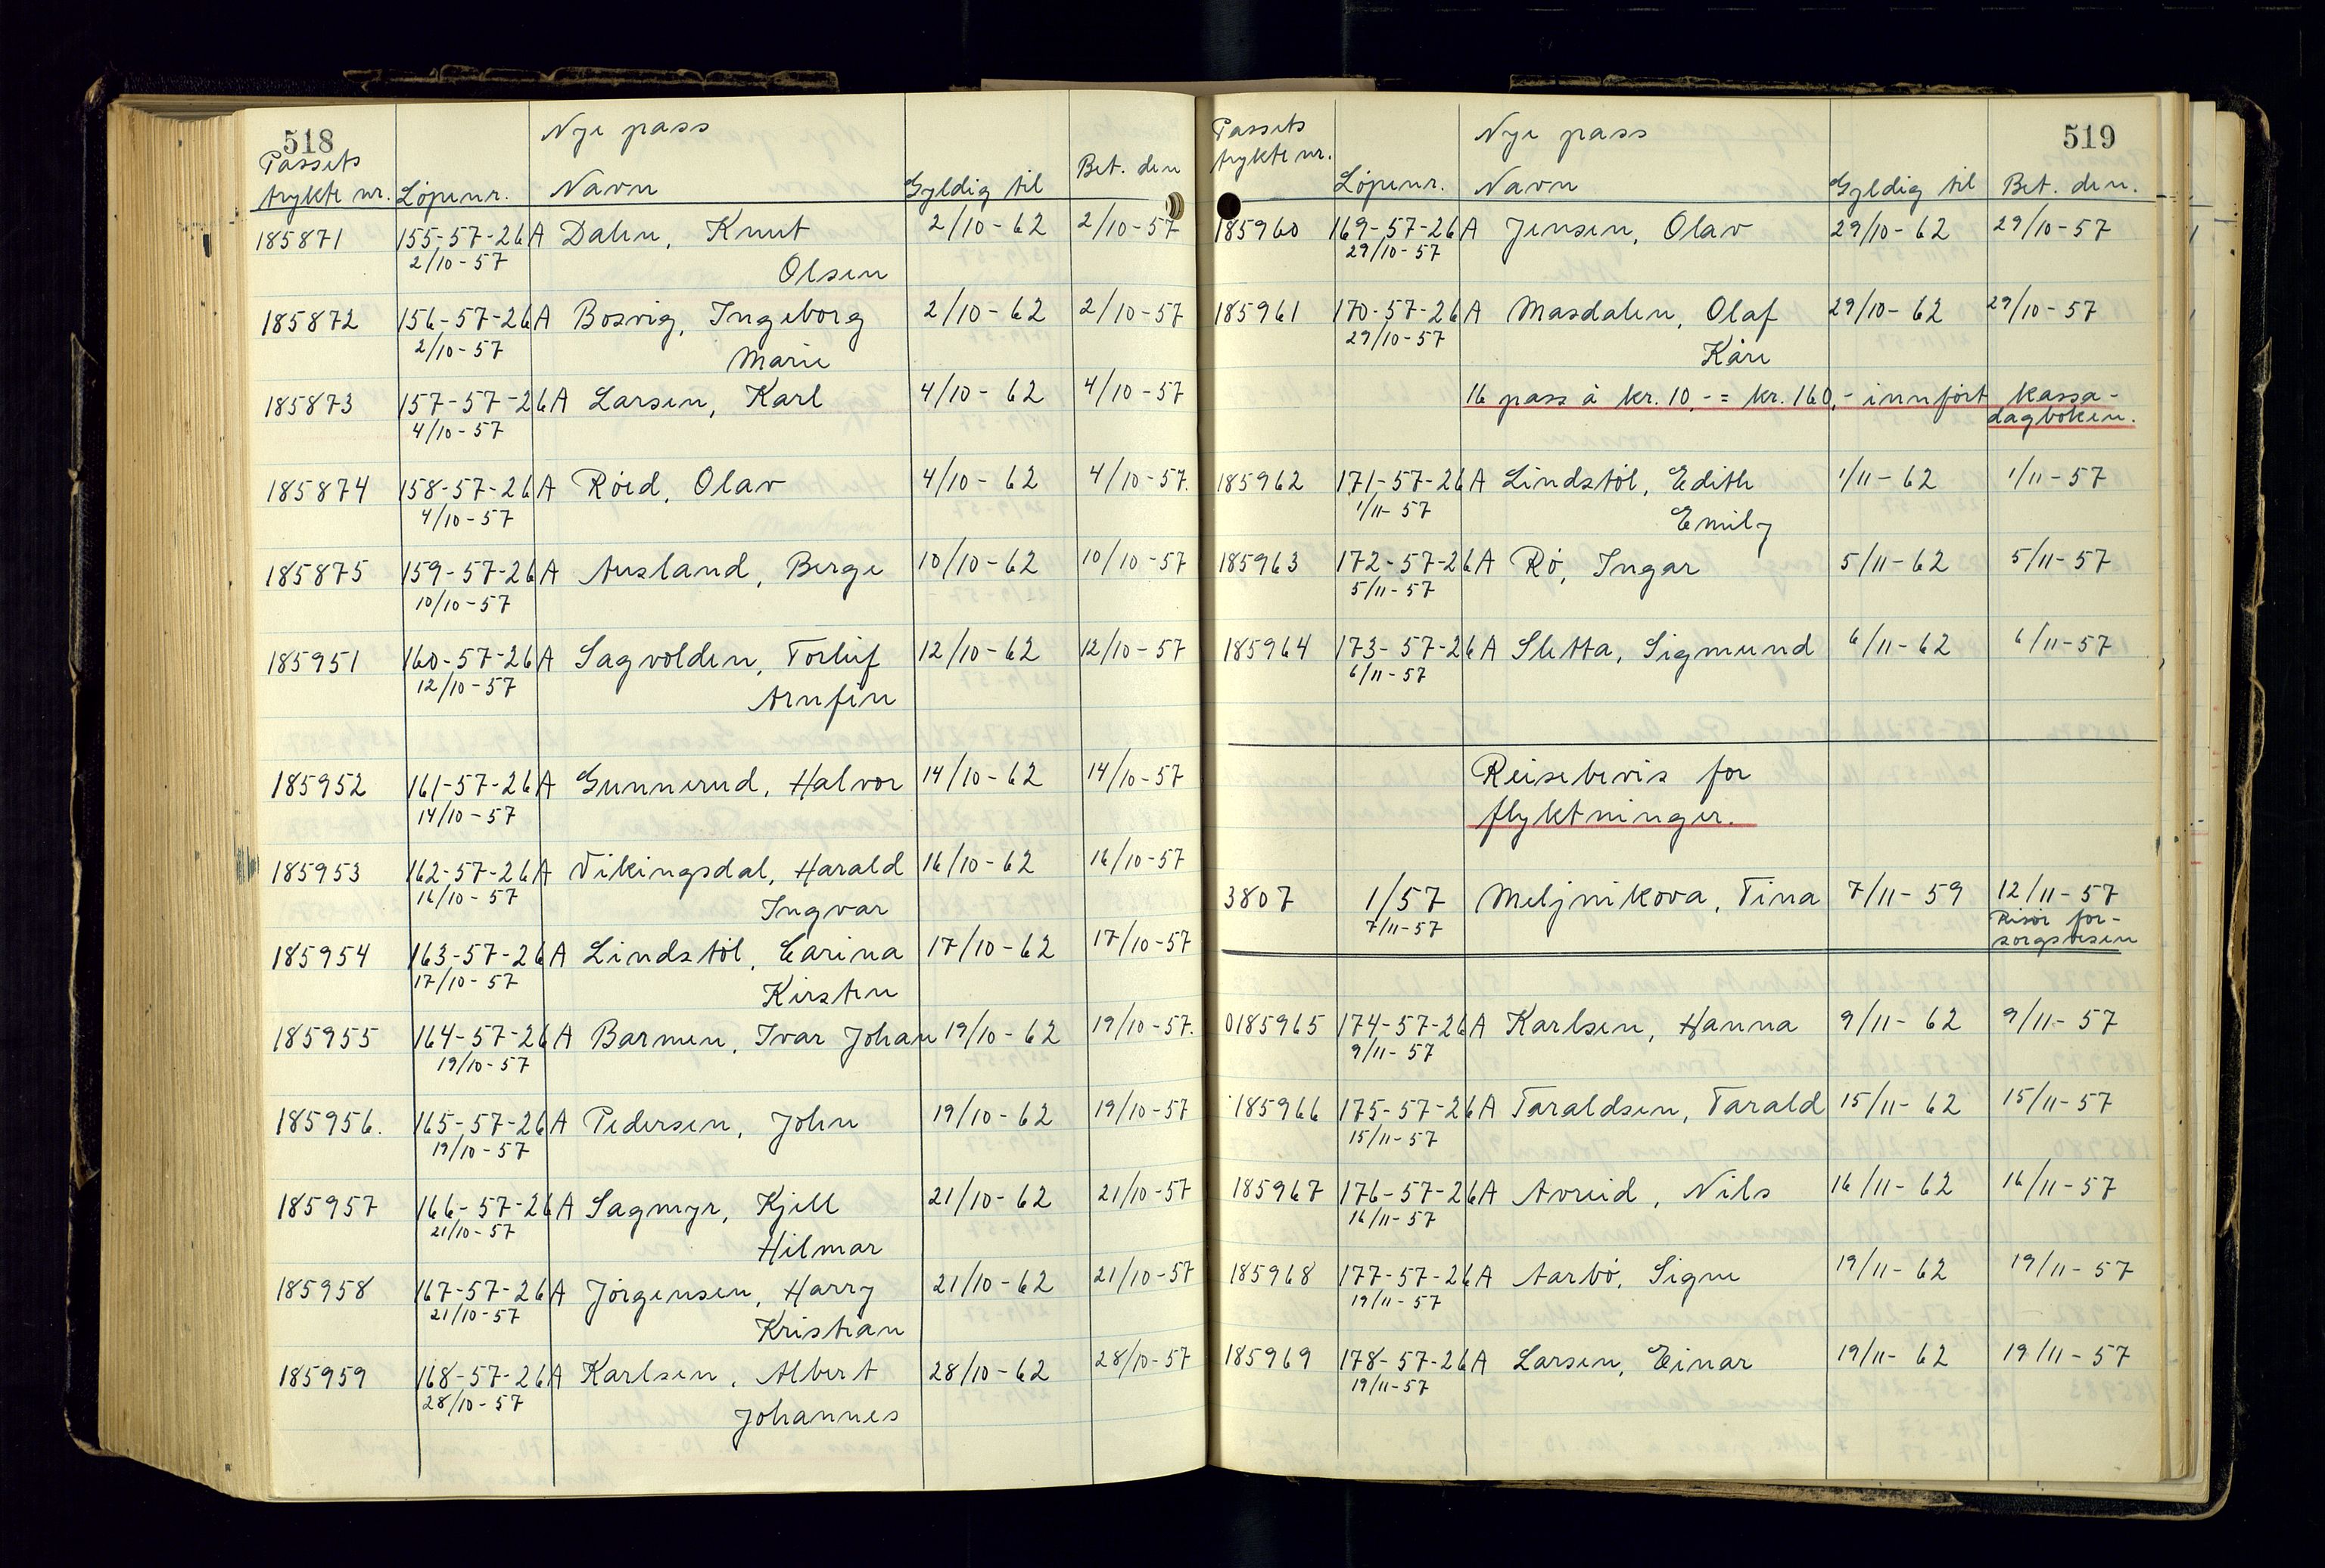 518
Nye pass
Passets
trykte nr. Löpenr. Navn Gyldig til Bet. den
185871 155-57-26A Dalen, Knut 2/10-62 2/10-57
2/10-57 Olsen
185872 156-57-26A Bosvig, Ingeborg 2/10-62 2/10-57
2/10-57 Marie
185873 157-57-26A Larsen, Karl 4/10-62 4/10-57
4/10-57
185874 158-57-26A Röed, Olav 4/10-62 4/10-57.
4/10-57
185875 159-57-26A Ausland, Berge 10/10-62 10/10-57
10/10-57
185951 160-57-26A Sagvolden, Torleif 12/10-62 12/10-57
12/10-57 Arnfin
185952 161-57-26A Gunnerud, Halvor 14/10-62 14/10-57
14/10-57
185953 162-57-26A Vikingsdal, Harald 16/10-62 16/10-57
16/10-57 Ingvar
185954 163-57-26A Lindstöl, Carina 17/10-62 17/10-57
17/10-57 Kirsten
185955 164-57-26A Barmen, Ivar Johan 19/10-62 19/10-57.
19/10-57
185956. 165-57-26A Pedersen, John 19/10-62 19/10-57
19/10-57
185957 166-57-26A Sagmyr, Kjell 21/10-62 21/10-57
21/10-57 Hilmar
185958 167-57-26A Jörgensen, Harry 21/10-62 21/10-57
21/10-57 Kristian
185959 168-57-26A Karlsen, Albert 28/10-62 28/10-57
28/10-57 Johannes
519
Passets Nye pass
trykte nr. Löpenr. Navn Gyldig til Bet. den.
185960 169-57-26A Jensen, Olav 29/10-62 29/10-57
29/10-57
185961 170-57-26A Masdalen, Olaf 29/10-62 29/10-57
29/10-57 Kåre
16 pass à kr. 10,- = kr. 160,- innfört kassa-
dagboken.
185962 171-57-26A Lindstöl, Edith 1/11-62 1/11-57
1/11-57 Emily
185963 172-57-26A Rö, Ingar 5/11-62 5/11-57
5/11-57
185964 173-57-26A Sletta, Sigmund 6/11-62 6/11-57
6/11-57
Reisebevis for
flyktninger.
3807 1/57 Meljnikova, Tina 7/11-59 12/11-57
7/11-57 Risör for-
sorgsvesen
0185965 174-57-26A Karlsen, Hanna 9/11-62 9/11-57
9/11-57
185966 175-57-26A Taraldsen, Tarald 15/11-62 15/11-57
15/11-57
185967 176-57-26A Avreid, Nils 16/11-62 16/11-57
16/11-57
185968 177-57-26A Aarbö, Signe 19/11-62 19/11-57
19/11-57
185969 178-57-26A Larsen, Einar 19/11-62 19/11-57
19/11-57